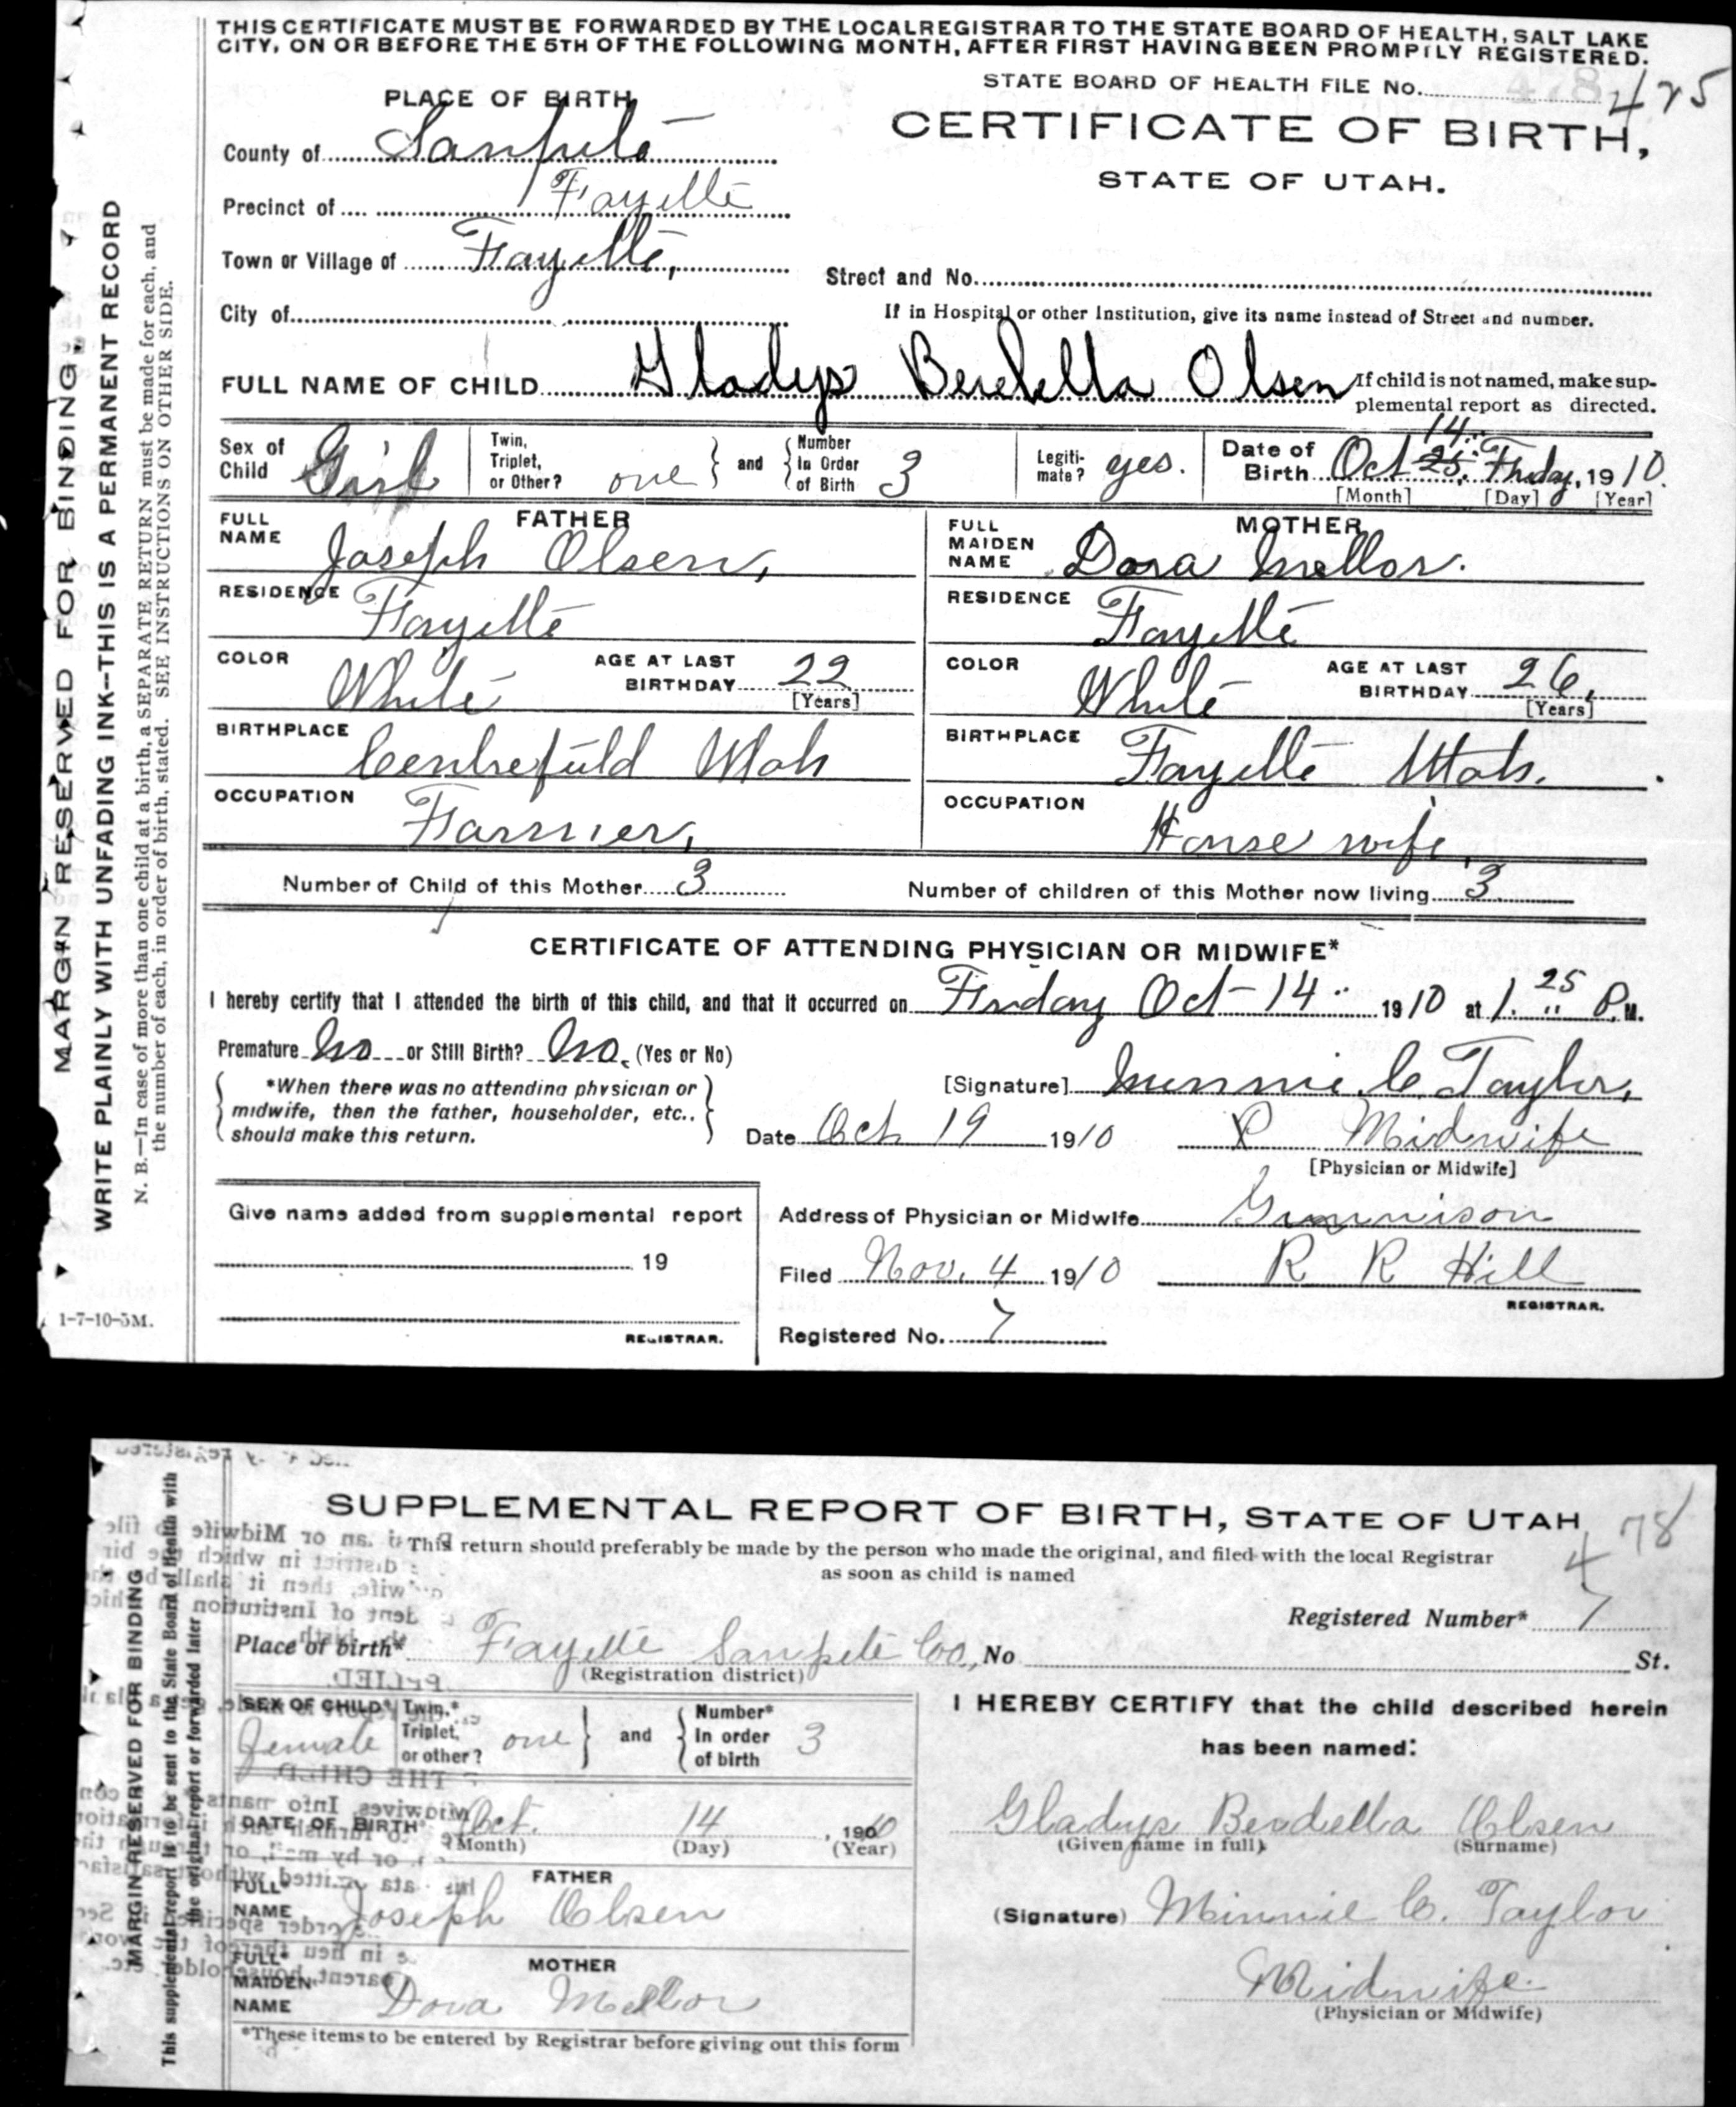 THIS CERTIFICATE MUST BE FORWARDED BY THE LOCALREGISTRAR TO THE STATE BOARD OF HEALTH, SALT LAKE
CITY, ON OR BEFORE THE 5TH OF THE FOLLOWING MONTH, AFTER FIRST HAVING BEEN PROMPILY REGISTERED.
STATE BOARD OF HEALTH FILE No. 478 425
PLACE OF BIRTH
CERTIFICATE OF BIRTH,
STATE OF UTAH.
County of Sanpete
Precinct of Fayette
Town or Village of Fayette,
Street and No.
City of
If in Hospital or other Institution, give its name instead of Street and number.
FULL NAME OF CHILD Gladys Berdella Olsen
If child is not named, make sup-
plemental report as directed.
Sex of Child Girl
Twin, Triplet, or Other? one } and { Number In Order of Birth 3
Legiti-mate? yes.
Date of Birth Oct 25, 14 Friday, 1910.
[Month] [Day] [Year]
FATHER
FULL NAME Joseph Olsen,
RESIDENCE Fayette
COLOR White AGE AT LAST BIRTHDAY 22 [Years]
BIRTHPLACE Centrefield Utah
OCCUPATION Farmer,
MOTHER
FULL MAIDEN NAME Dora Mellor.
RESIDENCE Fayette
COLOR White AGE AT LAST BIRTHDAY 26, [Years]
BIRTHPLACE Fayette Utah.
OCCUPATION House wife,
Number of Child of this Mother 3 Number of children of this Mother now living 3
CERTIFICATE OF ATTENDING PHYSICIAN OR MIDWIFE*
I hereby certify that I attended the birth of this child, and that it occurred on Friday Oct 14 1910 at 1.25 P.M.
Premature No or Still Birth? No. (Yes or No)
*When there was no attending physician or
midwife, then the father, householder, etc.,
should make this return.
[Signature] Minnie C. Taylor,
Date Oct 19 1910 Midwife
[Physician or Midwife]
Give name added from supplemental report
19
REGISTRAR.
Address of Physician or Midwife Gunnison
Filed Nov. 4 1910 R R Hill
REGISTRAR.
Registered No. 7
MARGIN RESERVED FOR BINDING
WRITE PLAINLY WITH UNFADING INK—THIS IS A PERMANENT RECORD
N. B.—In case of more than one child at a birth, a SEPARATE RETURN must be made for each, and
the number of each, in order of birth, stated. SEE INSTRUCTIONS ON OTHER SIDE.
1-7-10-5M.
SUPPLEMENTAL REPORT OF BIRTH, STATE OF UTAH
478
This return should preferably be made by the person who made the original, and filed with the local Registrar
as soon as child is named
Registered Number* 7
Place of birth* Fayette Sanpete Co., No St.
(Registration district)
SEX OF CHILD* Female
Twin,* Triplet, or other? one } and { Number* In order of birth 3
DATE OF BIRTH* Oct. 14, 1910
(Month) (Day) (Year)
FATHER
FULL* NAME Joseph Olsen
MOTHER
FULL* MAIDEN NAME Dora Mellor
*These items to be entered by Registrar before giving out this form
I HEREBY CERTIFY that the child described herein
has been named:
Gladys Berdella Olsen
(Given name in full) (Surname)
(Signature) Minnie C. Taylor
Midwife
(Physician or Midwife)
MARGIN RESERVED FOR BINDING
This supplemental report is to be sent to the State Board of Health with
the original report or forwarded later